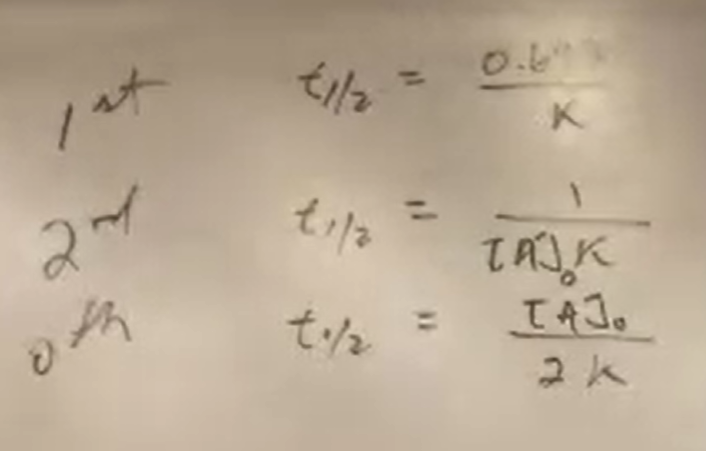 1st t1/2 = 0.6 / K
2nd t1/2 = 1 / [A]0 K
0th t1/2 = [A]0 / 2K